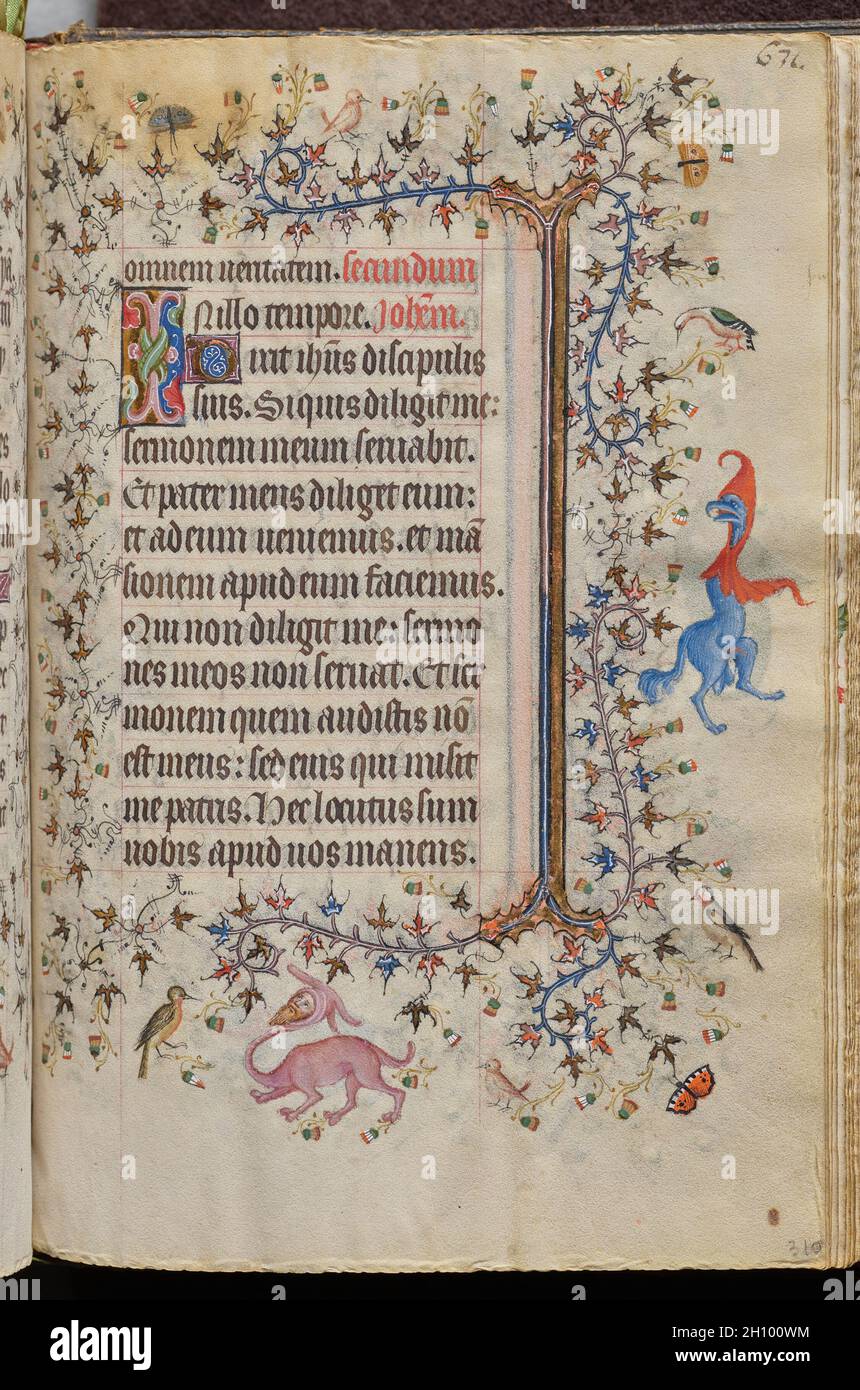 671.
omnem ueritatem. secundum
IN illo tempore. Johēm.
Dixit ihūs discipulis
suis. Si quis diligit me:
sermonem meum seruabit.
Et pater meus diliget eum:
et ad eum ueniemus. et mā
sionem apud eum faciemus.
Qui non diligit me: sermo
nes meos non seruat. Et ser
monem quem audistis nō
est meus: sed eius qui misit
me patris. Hec locutus sum
uobis apud uos manens.
310
alamy
Image ID: 2H100WM
www.alamy.com